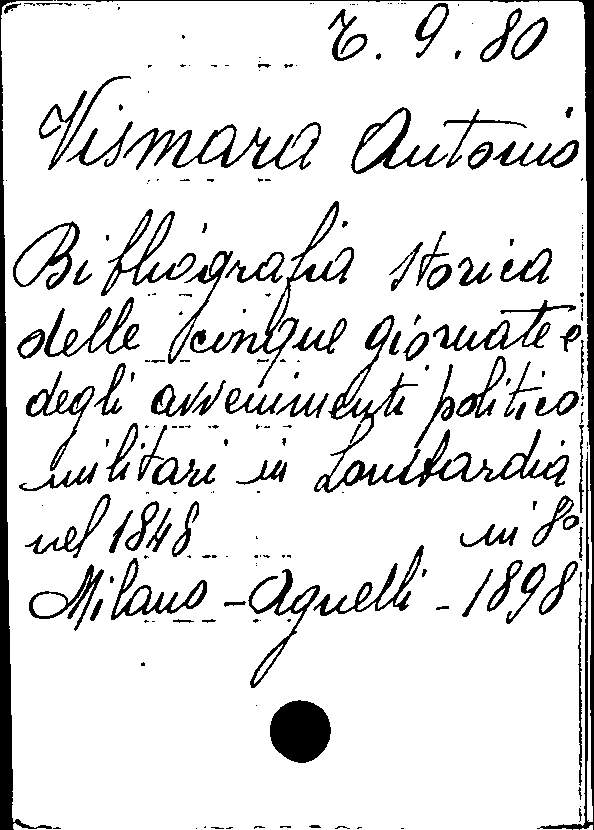 T. 9. 80
Vismara Antonio
Bibliografia storica
delle cinque giornate e
degli avvenimenti politico
militari in Lombardia
nel 1848 in 8°
Milano - Agnelli - 1898